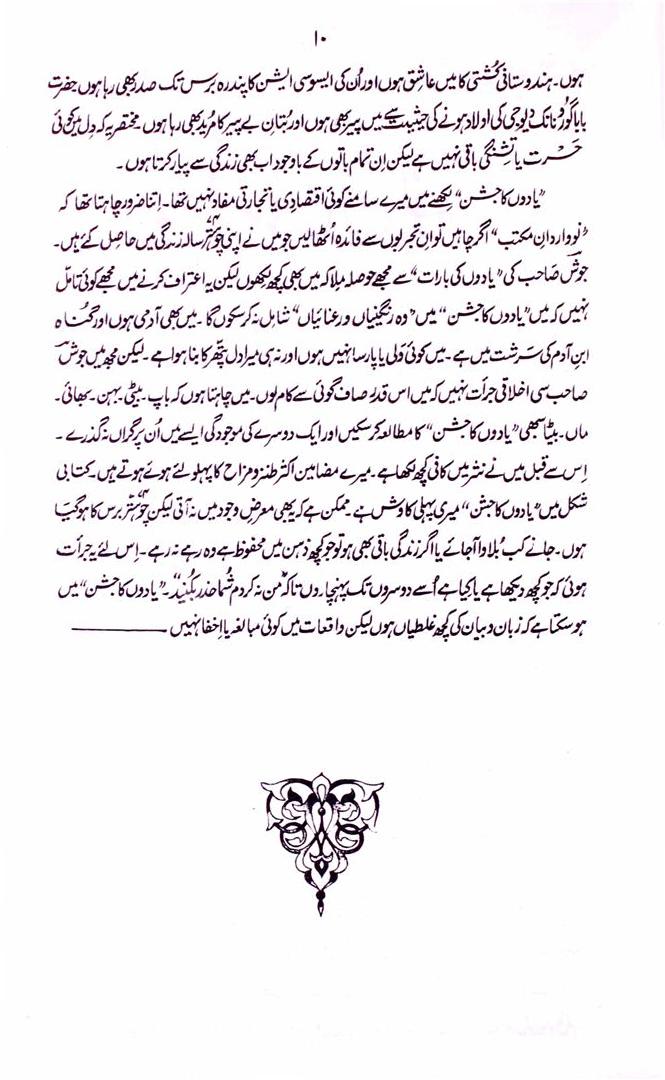 ۱۰
ہوں۔ ہندوستانی کُشتی کا میں عاشق ہوں اور اُن کی ایسوسی ایشن کا پندرہ برس تک صدر بھی رہا ہوں حضرت
بابا گورو نانک دیو جی کی اولاد ہونے کی حیثیت سے میں پیر بھی ہوں اور بُتانِ بے پیر کا مُرید بھی رہا ہوں۔ مختصر یہ کہ دِل میں کوئی
حسرت یا تشنگی باقی نہیں ہے لیکن اِن تمام باتوں کے باوجود اب بھی زندگی سے پیار کرتا ہوں۔
”یادوں کا جشن“ لکھنے میں میرے سامنے کوئی اقتصادی یا تجارتی مفاد نہیں تھا۔ اِتنا ضرور چاہتا تھا کہ
”نوواردانِ مکتب“ اگر چاہیں تو اِن تجربوں سے فائدہ اُٹھا لیں جو میں نے اپنی چوہتّر سالہ زندگی میں حاصل کئے ہیں۔
جوشؔ صاحب کی ”یادوں کی بارات“ سے مجھے حوصلہ مِلا کہ میں بھی کچھ لِکھوں لیکن یہ اعتراف کرنے میں مجھے کوئی تامّل
نہیں کہ میں ”یادوں کا جشن“ میں ”وہ رنگینیاں و رعنائیاں“ شامل نہ کر سکوں گا۔ میں بھی آدمی ہوں اور گناہ
ابنِ آدم کی سَرشت میں ہے۔ میں کوئی وَلی یا پارسا نہیں ہوں اور نہ ہی میرا دِل پتھّر کا بنا ہوا ہے۔ لیکن مجھ میں جوشؔ
صاحب سی اخلاقی جرأت نہیں کہ میں اس قدر صاف گوئی سے کام لوں۔ میں چاہتا ہوں کہ باپ۔ بیٹی۔ بہن۔ بھائی۔
ماں۔ بیٹا سبھی ”یادوں کا جشن“ کا مطالعہ کرسکیں اور ایک دوسرے کی موجودگی ایسے میں اُن پر گراں نہ گذرے۔
اِس سے قبل میں نے نثر میں کافی کچھ لکھا ہے۔ میرے مضامین اکثر طنز و مزاح کا پہلو لئے ہوئے ہوتے ہیں۔ کتابی
شکل میں ”یادوں کا جشن“ میری پہلی کاوش ہے۔ ممکن ہے کہ یہ بھی معرضِ وجود میں نہ آتی لیکن چوہتّر برس کا ہو گیا
ہوں۔ جانے کب بُلاوا آجائے یا اگر زندگی باقی بھی ہو تو جو کچھ ذہن میں محفوظ ہے وہ رہے نہ رہے۔ اِس لئے یہ جرأت
ہوئی کہ جو کچھ دیکھا ہے یا کِیا ہے اُسے دوسروں تک پہنچا دوں تاکہ ”من نہ کردم شُما حذر بکُنید“۔ ”یادوں کا جشن“ میں
ہو سکتا ہے کہ زبان و بیان کی کچھ غلطیاں ہوں لیکن واقعات میں کوئی مبالغہ یا اِخفا نہیں